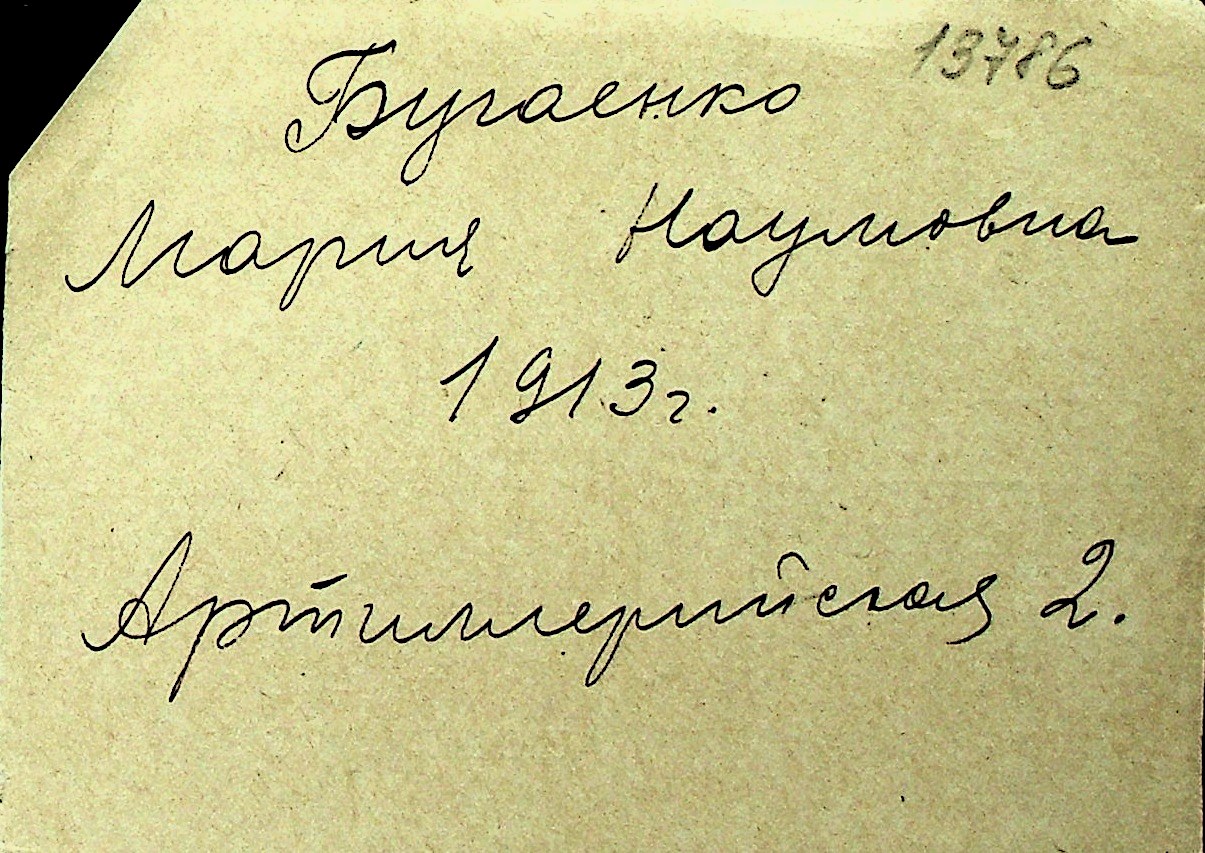 13786
Бугаенко
Мария Наумовна
1913г.
Артиллерийская 2.